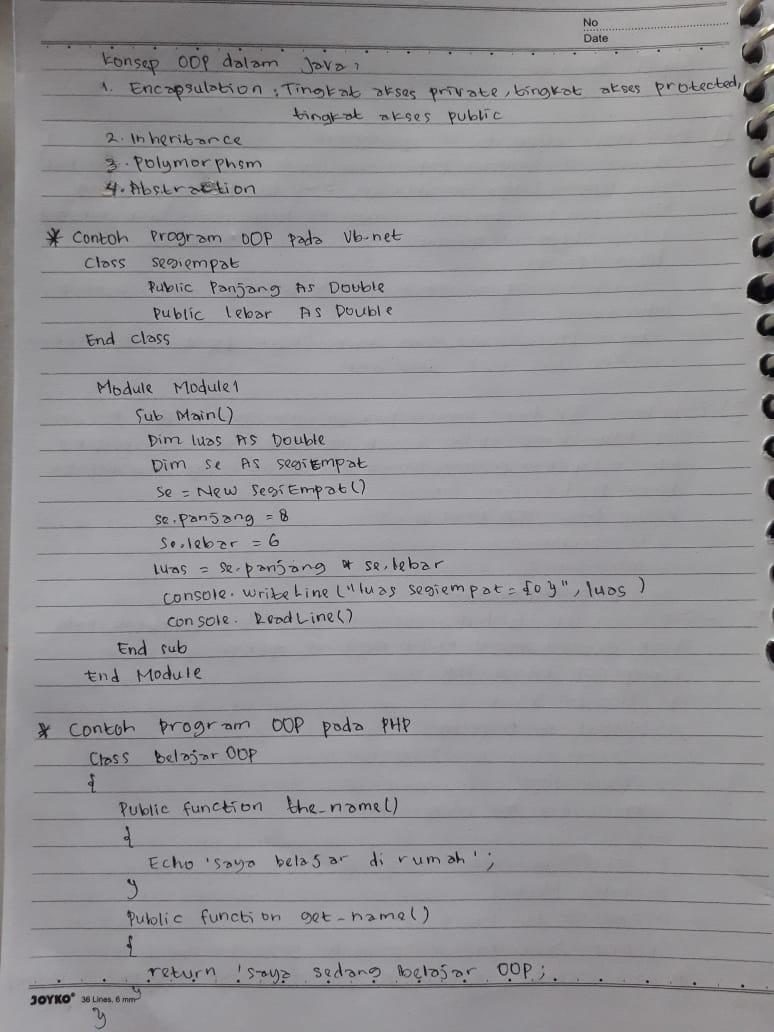 No
Date
Konsep OOP dalam Java :
1. Encapsulation : Tingkat akses private, tingkat akses protected,
tingkat akses public
2. Inheritance
3. Polymorphsm
4. Abstraction
* Contoh Program OOP pada Vb.net
Class segiempat
Public Panjang As Double
Public lebar As Double
End class
Module Module1
Sub Main()
Dim luas As Double
Dim se As segiEmpat
se = New SegiEmpat()
se.panjang = 8
se.lebar = 6
luas = se.panjang * se.lebar
console.writeline ("luas segiempat = {0}", luas )
console. ReadLine()
End sub
End Module
* Contoh Program OOP pada PHP
Class belajar OOP
{
Public function the_name()
{
Echo 'saya belajar di rumah';
}
Public function get_name()
{
return 'saya sedang belajar OOP;
}
JOYKO® 36 Lines, 6 mm
}